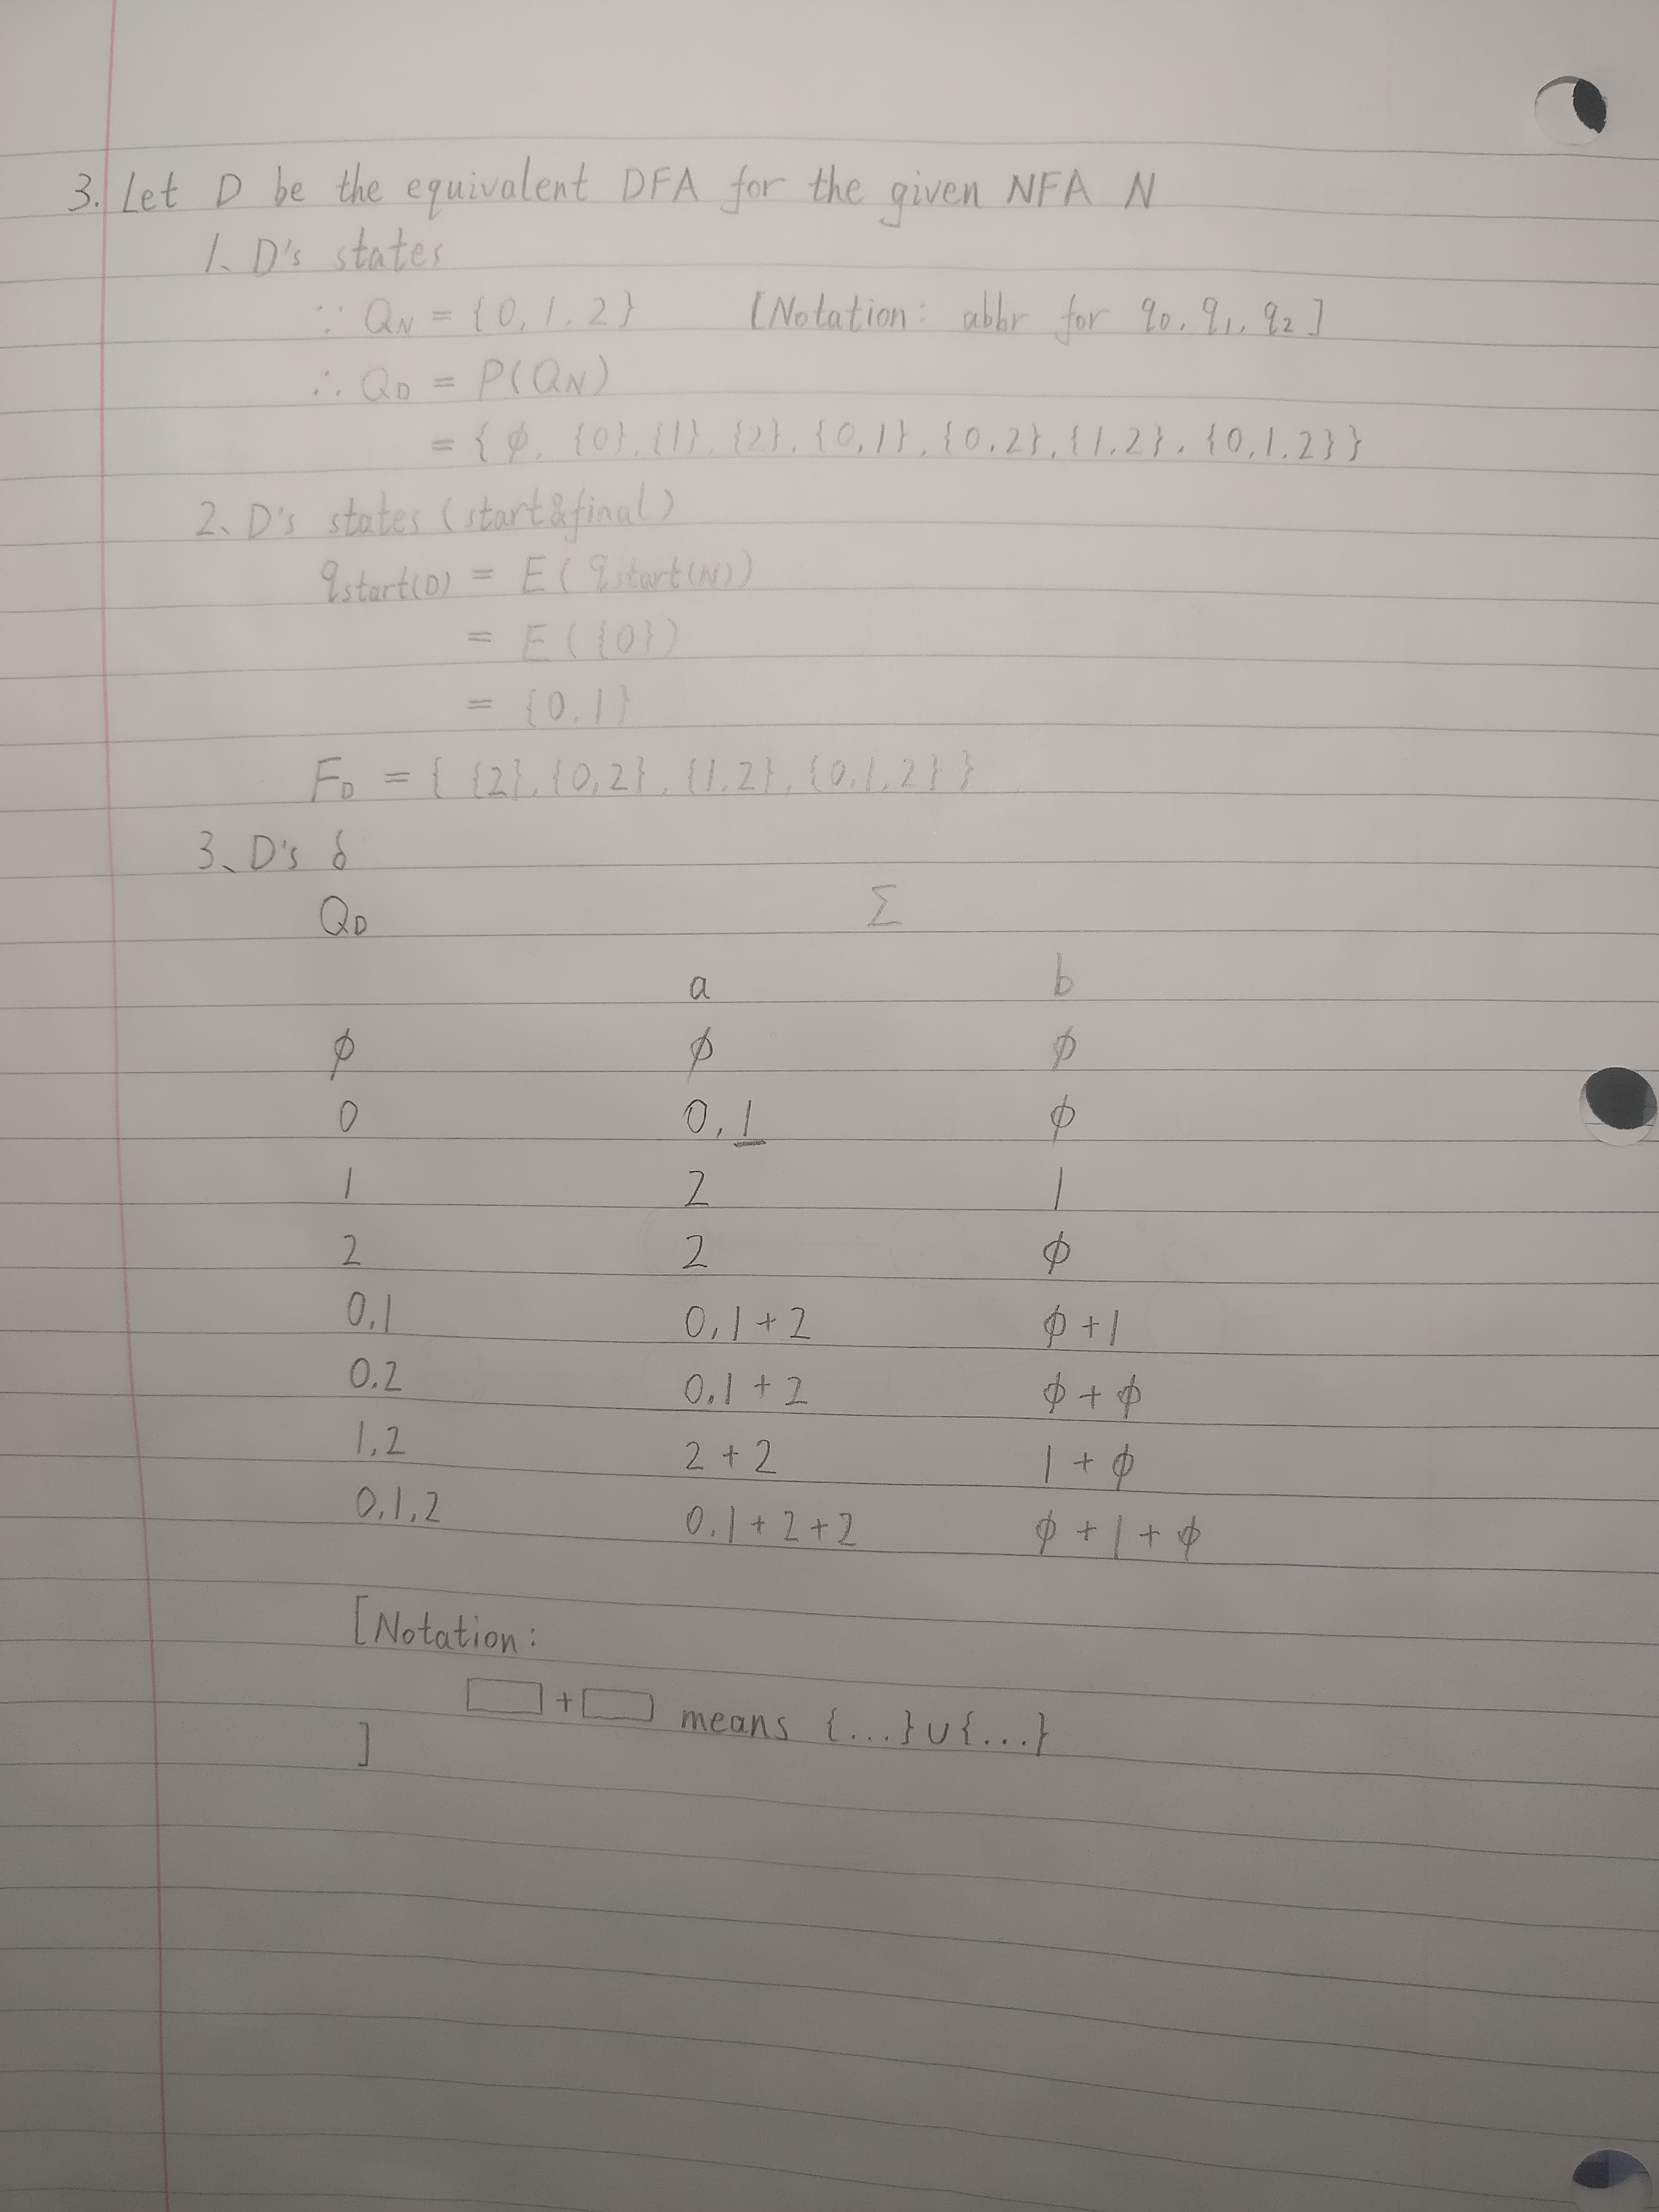 3. Let D be the equivalent DFA for the given NFA N
1、D's states
∵ QN = {0, 1, 2} [Notation: abbr for q0, q1, q2]
∴ QD = P(QN)
= { ϕ, {0}, {1}, {2}, {0,1}, {0,2}, {1,2}, {0,1,2}}
2、D's states (start&final)
qstart(D) = E(qstart(N))
= E({0})
= {0,1}
FD = { {2}, {0,2}, {1,2}, {0,1,2} }
3、D's δ
QD Σ
a b
ϕ ϕ ϕ
0 0,1 ϕ
1 2 1
2 2 ϕ
0,1 0,1+2 ϕ+1
0,2 0,1+2 ϕ+ϕ
1,2 2+2 1+ϕ
0,1,2 0,1+2+2 ϕ+1+ϕ
[Notation:
□+□ means {...}∪{...}
]